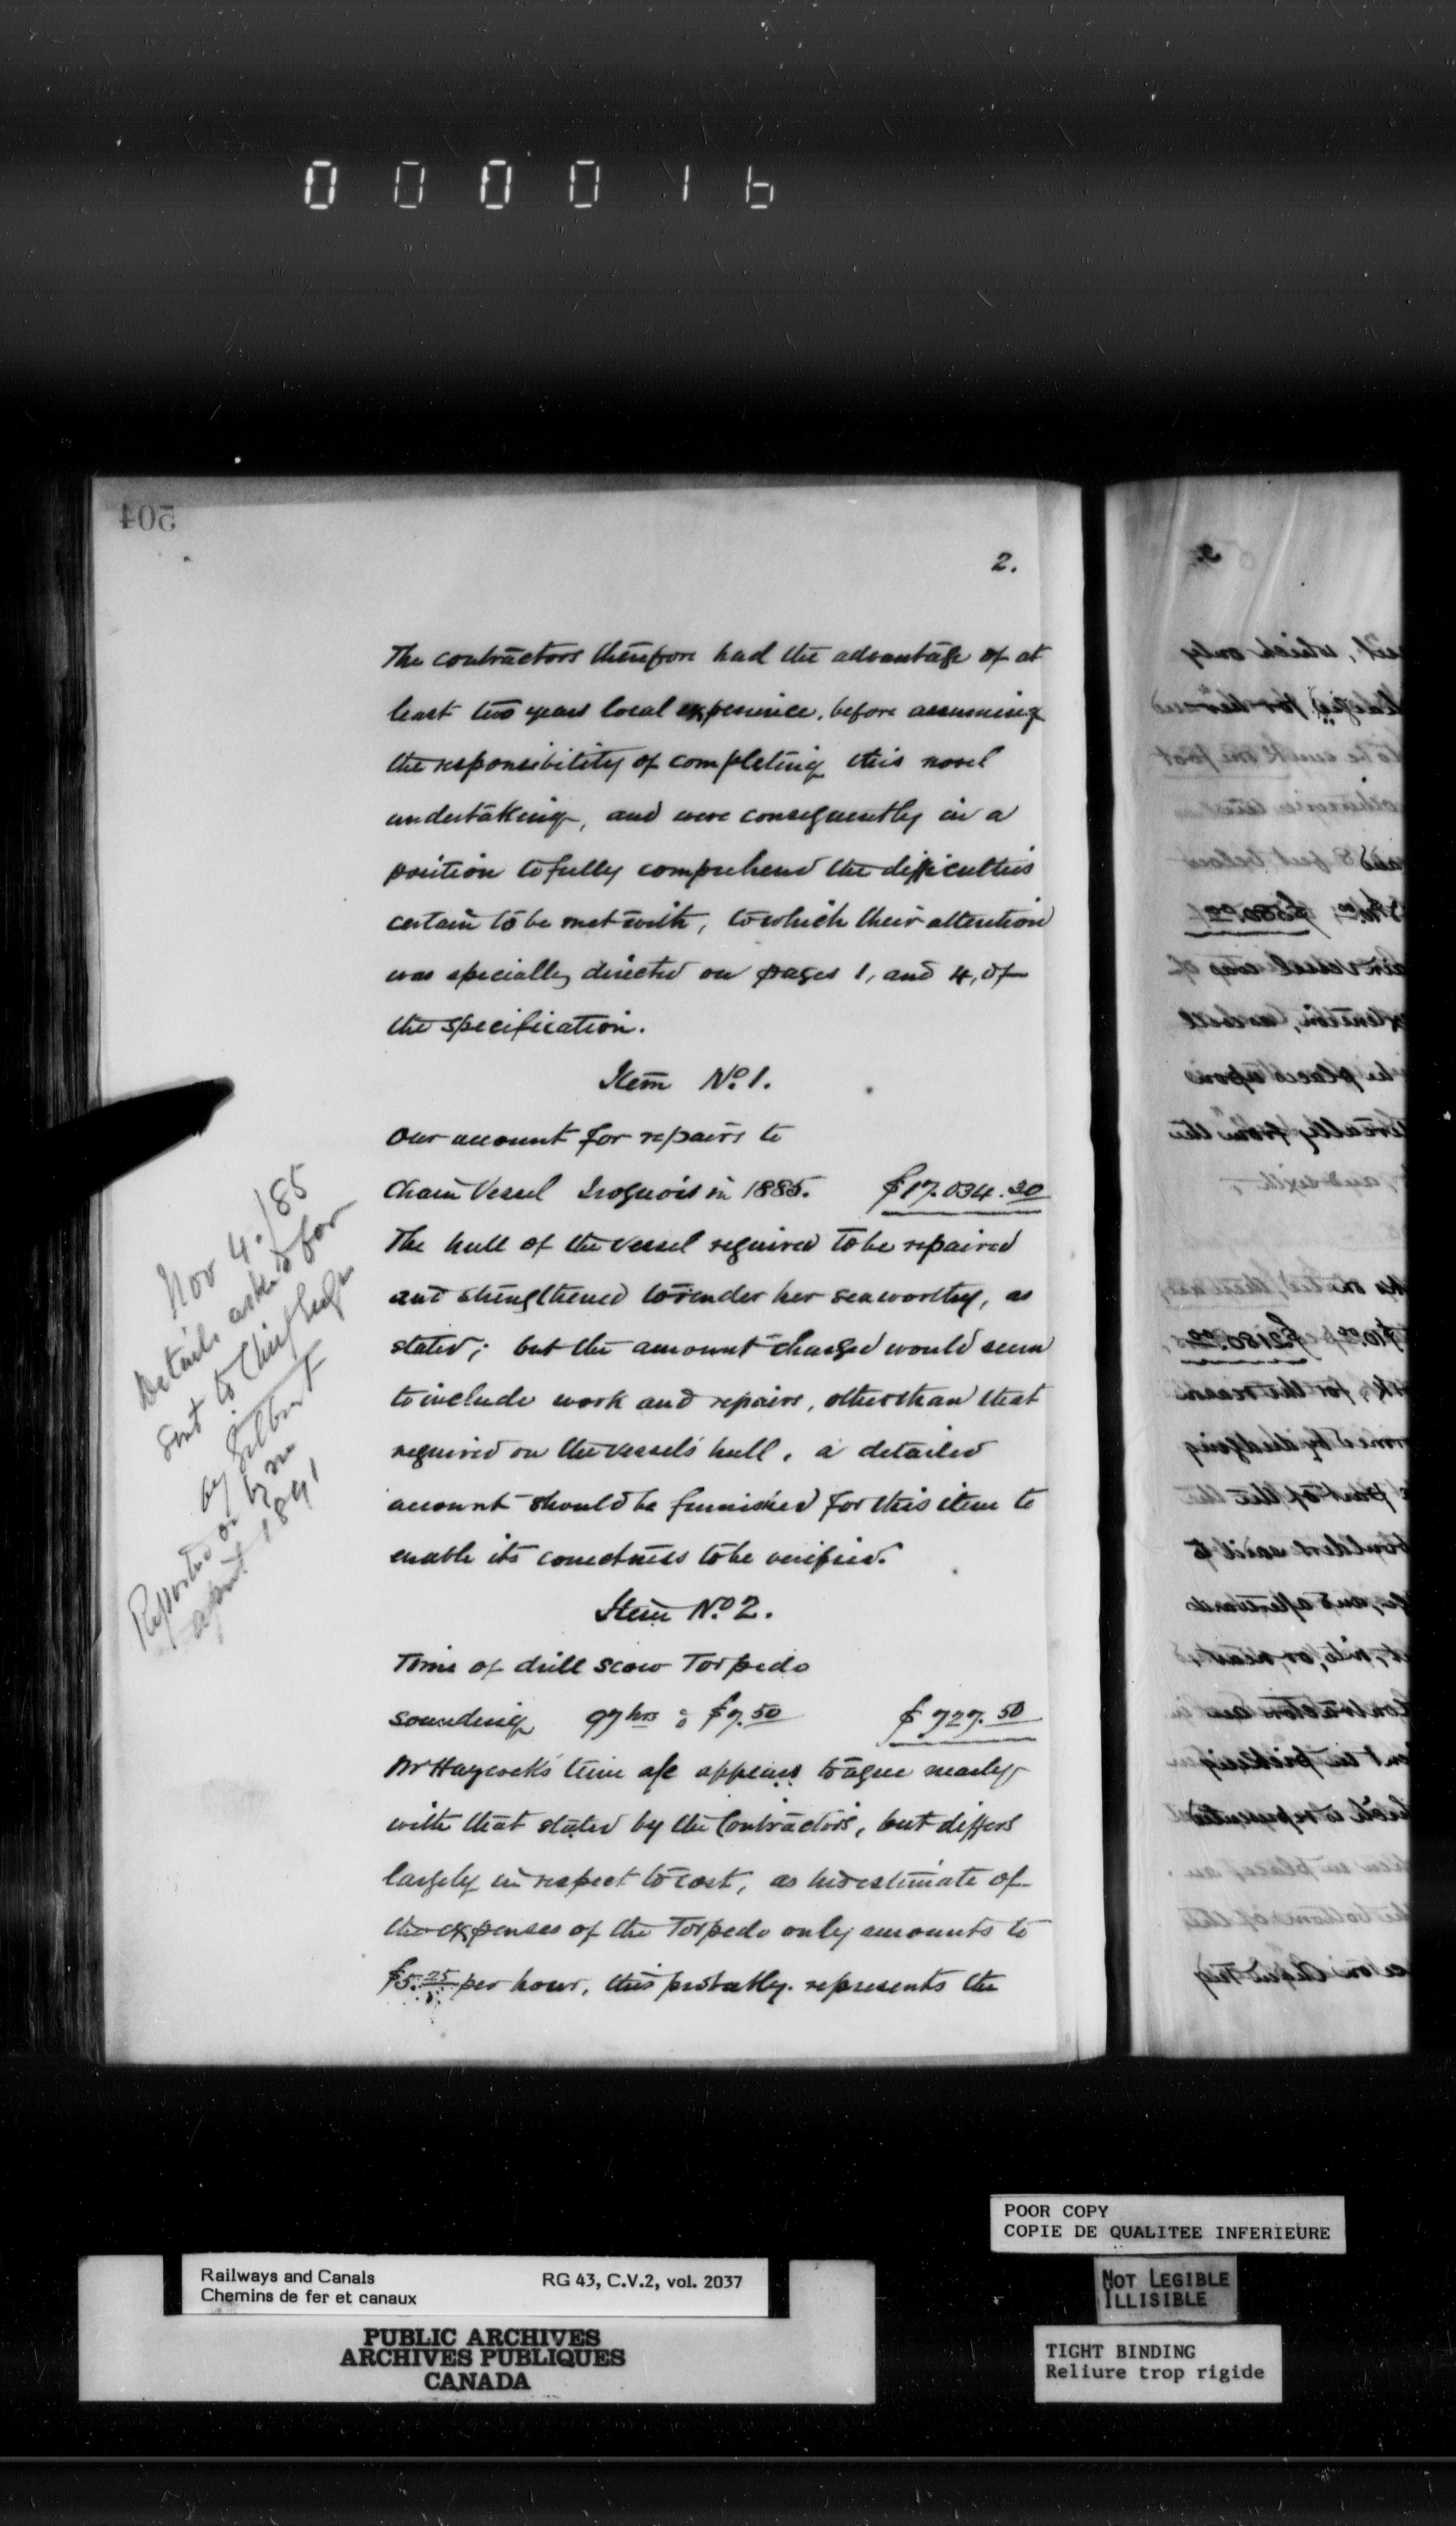 000016
504
2.
The contractors therefore had the advantage of at
least two years local experience, before assuming
the responsibility of completing this novel
undertaking, and were consequently in a
position to fully comprehend the difficulties
certain to be met with, to which their attention
was specially directed on pages 1, and 4, of
the specification.
Item No. 1.
Our account for repairs to
Chain Vessel Iroquois in 1885. $17.034.30
The hull of the vessel required to be repaired
and strengthened to render her seaworthy, as
stated; but the amount charged would seem
to include work and repairs, other than that
required on the vessels hull, a detailed
account should be furnished for this item to
enable its correctness to be verified.
Nov 4./85
Details asked for
sent to Chief Engr
by Gilbert
Reported on by me
April 1891
Item No. 2.
Time of drill scow Torpedo
sounding 97 hrs @ $7.50 $727.50
Mr Haycock's time a/c appears to agree nearly
with that stated by the Contractors, but differs
largely in respect to cost, as his estimate of
the expenses of the Torpedo only amounts to
$5.25 per hour, this probably represents the
POOR COPY
COPIE DE QUALITEE INFERIEURE
NOT LEGIBLE
ILLISIBLE
TIGHT BINDING
Reliure trop rigide
Railways and Canals RG 43, C.V.2, vol. 2037
Chemins de fer et canaux
PUBLIC ARCHIVES
ARCHIVES PUBLIQUES
CANADA